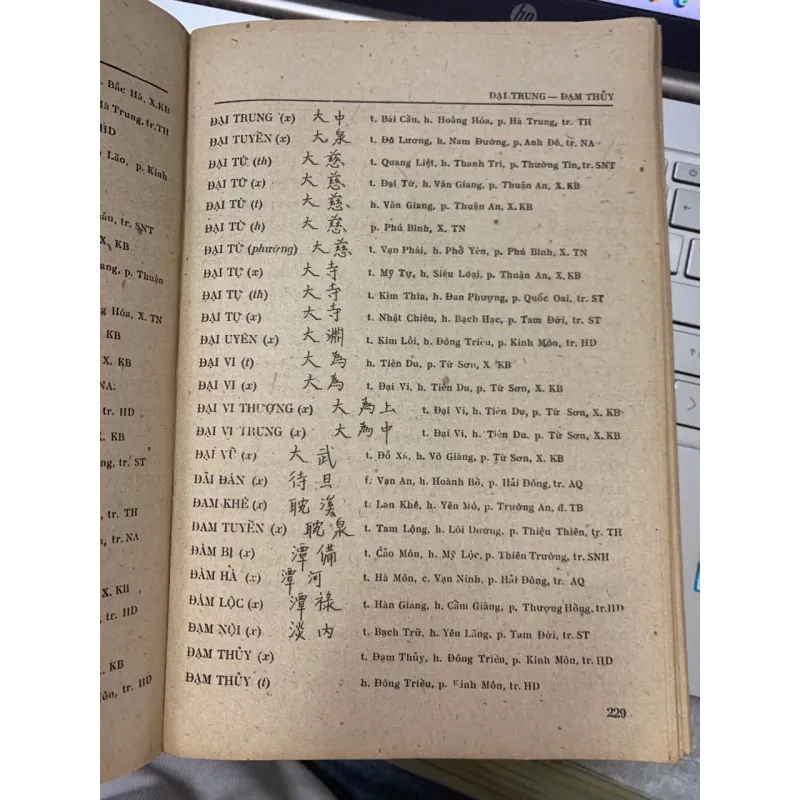 Bắc Hà, X.KB
Hà Trung, tr.TH
HD
Lão, p. Kinh
tr. SNT
X. KB
ang, p. Thuận
g Hóa, X. TN
KB
X. KB
NA:
tr. HD
X. KB
ng, tr. ST
tr. TH
tr. NA
X. KB
tr. HD
X. KB
Môn, tr. HD
hp
ĐẠI TRUNG — ĐẠM THỦY
ĐẠI TRUNG (x) 大中 t. Bái Cầu, h. Hoằng Hóa, p. Hà Trung, tr. TH
ĐẠI TUYỀN (x) 大泉 t. Đô Lương, h. Nam Đường, p. Anh Đô, tr. NA
ĐẠI TỪ (th) 大慈 t. Quang Liệt, h. Thanh Trì, p. Thường Tín, tr. SNT
ĐẠI TỪ (x) 大慈 t. Đại Từ, h. Văn Giang, p. Thuận An, X. KB
ĐẠI TỪ (t) 大慈 h. Văn Giang, p. Thuận An, X. KB
ĐẠI TỪ (h) 大慈 p. Phú Bình, X. TN
ĐẠI TỪ (phường) 大慈 t. Vạn Phái, h. Phổ Yên, p. Phú Bình, X. TN
ĐẠI TỰ (x) 大寺 t. Mỹ Tự, h. Siêu Loại, p. Thuận An, X. KB
ĐẠI TỰ (th) 大寺 t. Kim Thìa, h. Đan Phượng, p. Quốc Oai, tr. ST
ĐẠI TỰ (x) 大寺 t. Nhật Chiêu, h. Bạch Hạc, p. Tam Đới, tr. ST
ĐẠI UYÊN (x) 大淵 t. Kim Lôi, h. Đông Triều, p. Kinh Môn, tr. HD
ĐẠI VI (t) 大為 h. Tiên Du, p. Từ Sơn, X. KB
ĐẠI VI (x) 大為 t. Đại Vi, h. Tiên Du, p. Từ Sơn, X. KB
ĐẠI VI THƯỢNG (x) 大為上 t. Đại Vi, h. Tiên Du, p. Từ Sơn, X. KB
ĐẠI VI TRUNG (x) 大為中 t. Đại Vi, h. Tiên Du. p. Từ Sơn, X. KB
ĐẠI VŨ (x) 大武 t. Đỗ Xá, h. Võ Giàng, p. Từ Sơn, X. KB
ĐÃI ĐÁN (x) 待旦 t. Vạn An, h. Hoành Bồ, p. Hải Đông, tr. AQ
ĐAM KHÊ (x) 耽溪 t. Lan Khê, h. Yên Mô, p. Trường An, đ. TB
ĐAM TUYỀN (x) 耽泉 t. Tam Lộng, h. Lôi Dương, p. Thiệu Thiên, tr. TH
ĐÀM BỊ (x) 潭備 t. Cảo Môn, h. Mỹ Lộc, p. Thiên Trường, tr. SNH
ĐÀM HÀ (x) 潭河 t. Hà Môn, c. Vạn Ninh, p. Hải Đông, tr. AQ
ĐÀM LỘC (x) 潭祿 t. Hàn Giang, h. Cẩm Giàng, p. Thượng Hồng, tr. HD
ĐẠM NỘI (x) 淡内 t. Bạch Trữ, h. Yên Lãng, p. Tam Đới, tr. ST
ĐẠM THỦY (x) t. Đạm Thủy, h. Đông Triều, p. Kinh Môn, tr. HD
ĐẠM THỦY (t) h. Đông Triều, p. Kinh Môn, tr. HD
229